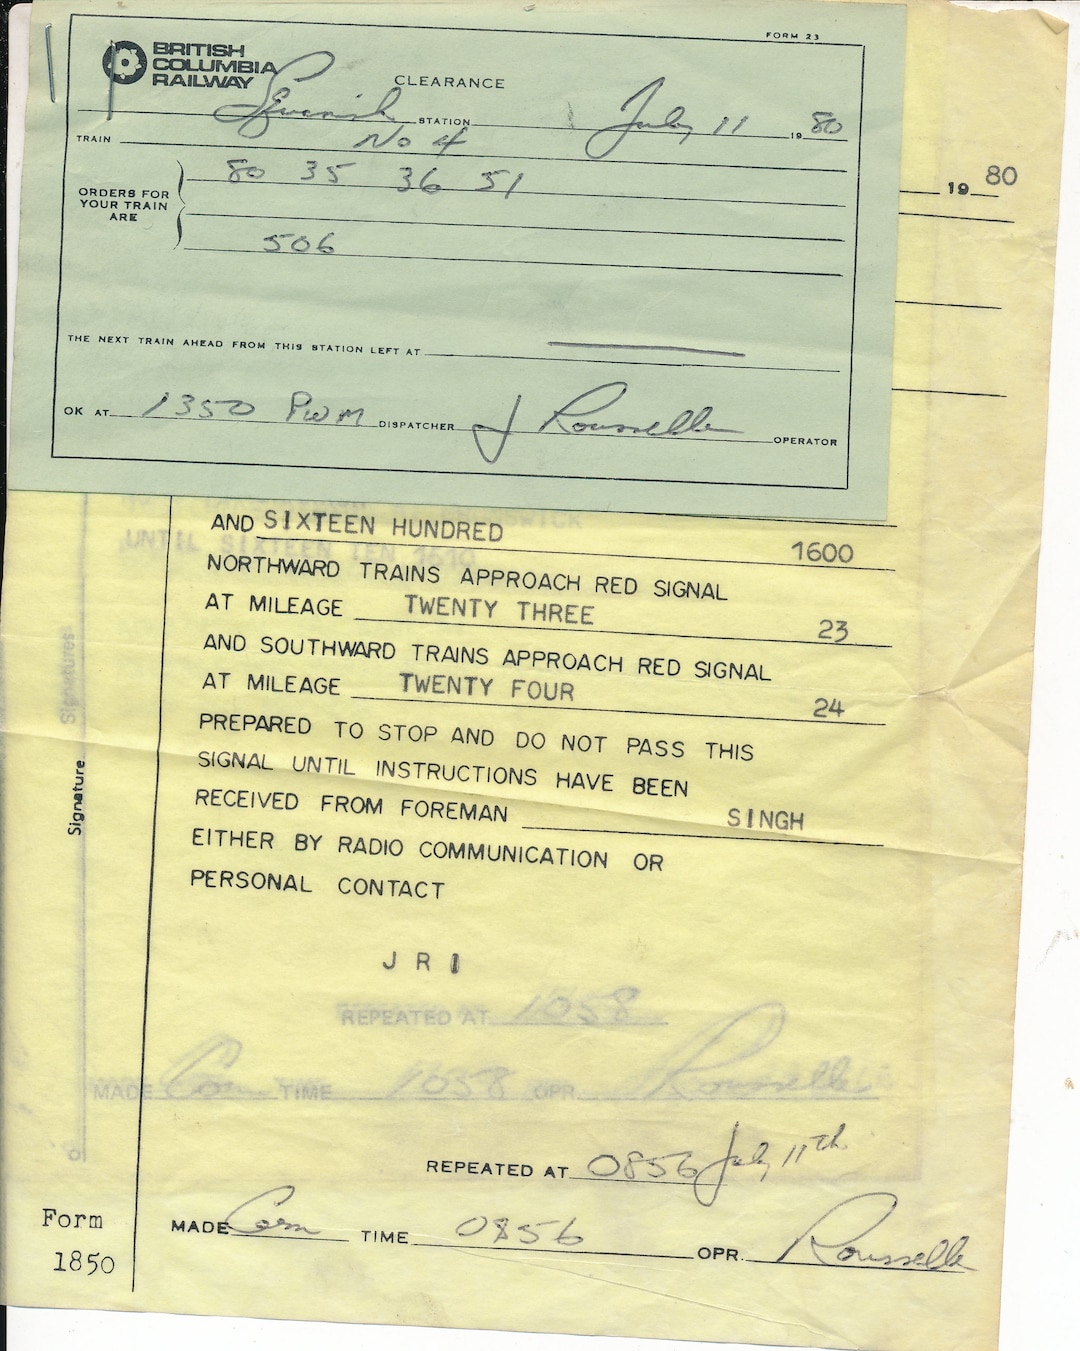 FORM 23
BRITISH
COLUMBIA
RAILWAY
CLEARANCE
STATION July 11 19 80
TRAIN No 4
80 35 36 51
ORDERS FOR
YOUR TRAIN
ARE
506
THE NEXT TRAIN AHEAD FROM THIS STATION LEFT AT
OK AT 1350 PWM DISPATCHER J Rousselle OPERATOR
19 80
AND SIXTEEN HUNDRED 1600
UNTIL SIXTEEN TEN 1610
NORTHWARD TRAINS APPROACH RED SIGNAL
AT MILEAGE TWENTY THREE 23
AND SOUTHWARD TRAINS APPROACH RED SIGNAL
AT MILEAGE TWENTY FOUR 24
PREPARED TO STOP AND DO NOT PASS THIS
SIGNAL UNTIL INSTRUCTIONS HAVE BEEN
RECEIVED FROM FOREMAN SINGH
EITHER BY RADIO COMMUNICATION OR
PERSONAL CONTACT
Signatures
Signature
J R I
REPEATED AT 1058
MADE Com TIME 1058 OPR. Rousselle
REPEATED AT 0856 July 11th
MADE Com TIME 0856 OPR. Rousselle
Form
1850